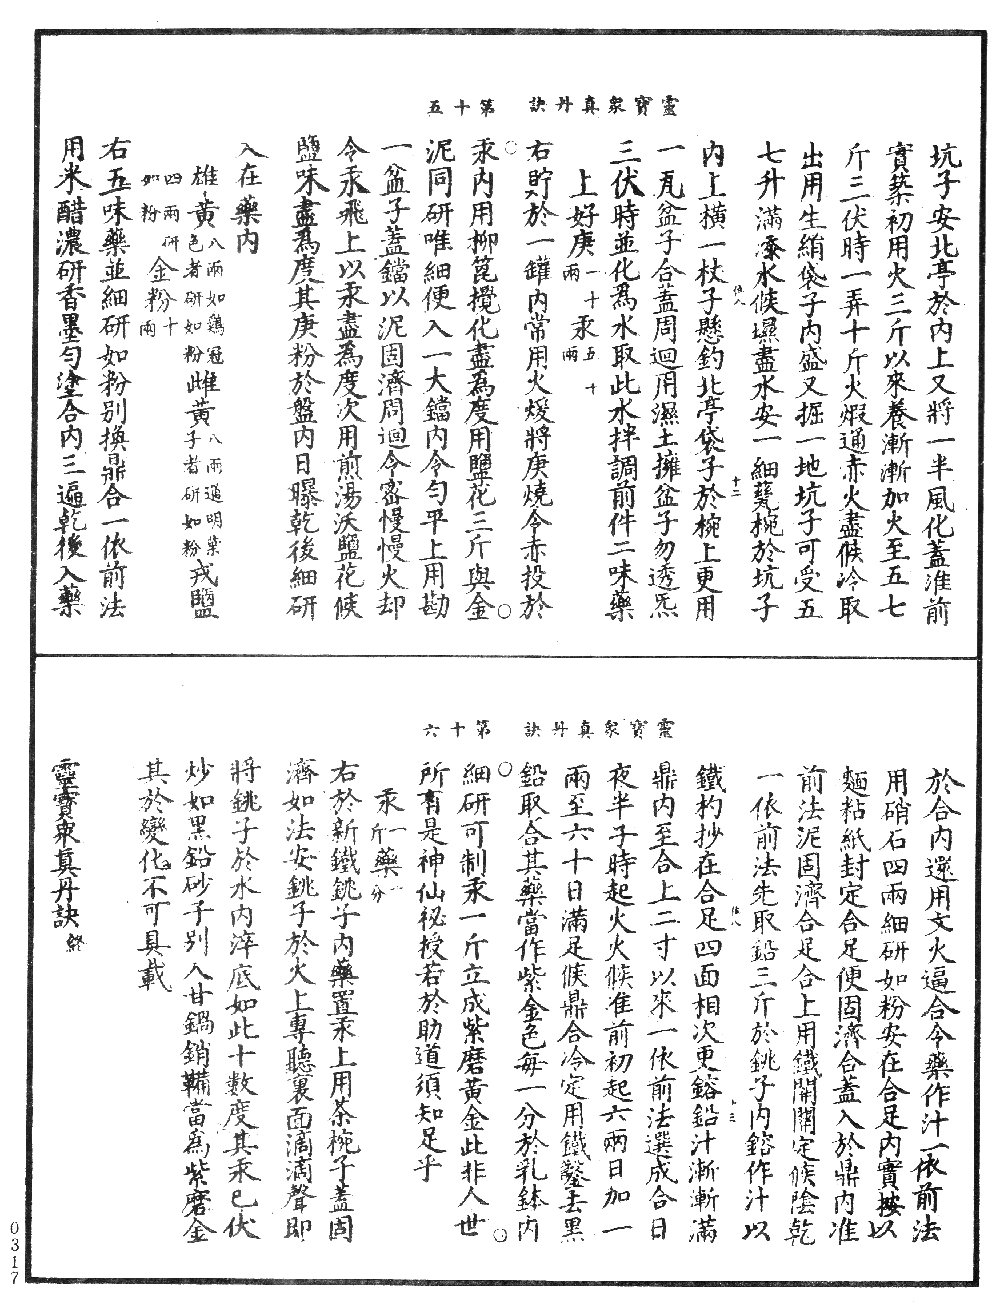 靈寶眾真丹訣　第十五
坑子安北亭於內上又將一半風化蓋准前
實築初用火三斤以來養漸漸加火至五七
斤三伏時一弄十斤火煆通赤火盡候冷取
出用生絹袋子內盛又掘一地坑子可受五
七升滿添水候㙷盡水安一細甆椀於坑子
內上橫一杖子懸釣北亭袋子於椀上更用
一瓦盆子合蓋周迴用濕土擁盆子勿透炁
三伏時並化為水取此水拌調前件二味藥
上好庚一十兩汞五十兩
右貯於一鑵內常用火煖將庚燒令赤投於
汞內用柳篦攪化盡為度用鹽花三斤與金
泥同研唯細便入一大鐺內令勻平上用勘
一盆子蓋鐺以泥固濟周迴令密慢慢火却
令汞飛上以汞盡為度次用煎湯沃鹽花候
鹽味盡為度其庚粉於盤內日曝乾後細研
入在藥內
雄黃八兩如鷄冠色者研如粉雌黃八兩通明葉子者研如粉戎鹽
四兩研如粉金粉十兩
右五味藥並細研如粉別換鼎合一依前法
用米醋濃研香墨勻塗合內三遍乾後入藥
靈寶眾真丹訣　第十六
於合內還用文火逼合令藥作汁一依前法
用硝石四兩細研如粉安在合足內實按以
麵粘紙封定合足便固濟合蓋入於鼎內准
前法泥固濟合足合上用鐵關關定候陰乾
一依前法先取鉛三斤於銚子內鎔作汁以
鐵杓抄在合足四面相次更鎔鉛汁漸漸滿
鼎內至合上二寸以來一依前法選成合日
夜半子時起火火候准前初起六兩日加一
兩至六十日滿足候鼎合冷定用鐵鏨去黑
鉛取合其藥當作紫金色每一分於乳鉢內
細研可制汞一斤立成紫磨黃金此非人世
所有是神仙祕授若於助道須知足乎
汞一斤藥一分
右於新鐵銚子內藥置汞上用茶椀子蓋固
濟如法安銚子於火上專聽裏面滴滴聲即
將銚子於水內淬底如此十數度其汞已伏
炒如黑鉛砂子別入甘鍋銷鞴當為紫磨金
其於變化不可具載
靈寶眾真丹訣終
0317